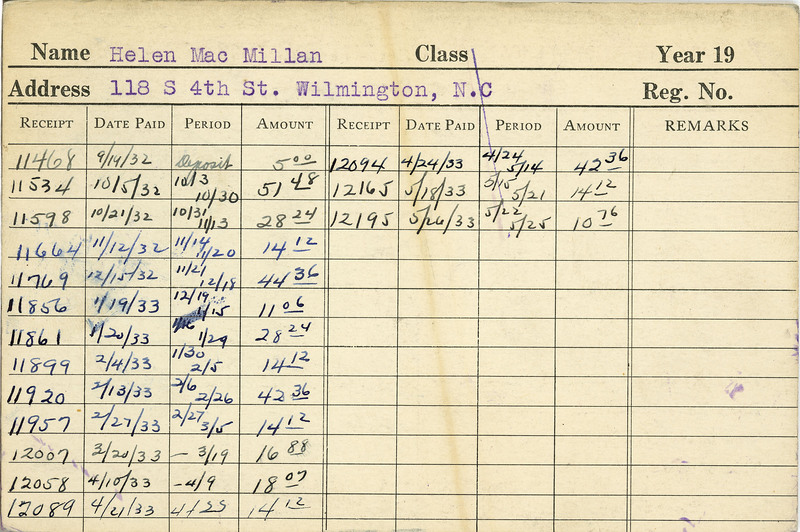 Name Helen Mac Millan Class Year 19
Address 118 S 4th St. Wilmington, N.C Reg. No.
RECEIPT DATE PAID PERIOD AMOUNT RECEIPT DATE PAID PERIOD AMOUNT REMARKS
11468 9/19/32 Deposit 5 00 12094 4/24/33 4/24 5/14 42 36
11534 10/5/32 10/3 10/30 51 48 12165 5/18/33 5/15 5/21 14 12
11598 10/21/32 10/31 11/13 28 24 12195 5/26/33 5/22 5/25 10 76
11664 11/12/32 11/14 11/20 14 12
11769 12/15/32 11/21 12/18 44 36
11856 1/19/33 12/19 1/15 11 06
11861 1/20/33 1/16 1/29 28 24
11899 2/4/33 1/30 2/5 14 12
11920 2/13/33 2/6 2/26 42 36
11957 2/27/33 2/27 3/5 14 12
12007 3/20/33 - 3/19 16 88
12058 4/10/33 - 4/9 18 07
12089 4/21/33 14 12